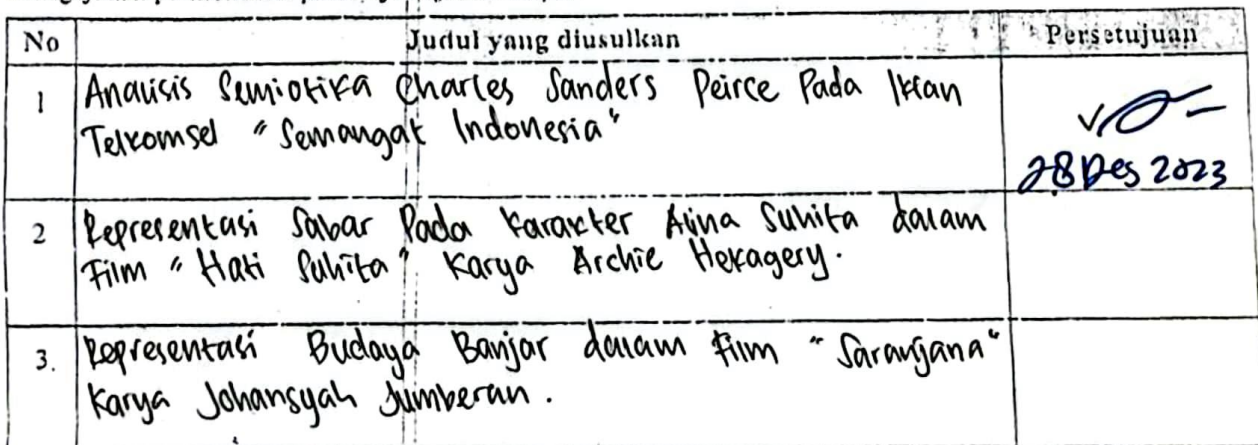 No Judul yang diusulkan Persetujuan
1 Analisis Semiotika Charles Sanders Peirce Pada Iklan
Telkomsel "Semangat Indonesia"
28 Des 2023
2 Representasi Sabar Pada Karakter Alina Suhita dalam
Film "Hati Suhita" Karya Archie Hekagery.
3. Representasi Budaya Banjar dalam Film "Saranjana"
Karya Johansyah Jumberan.